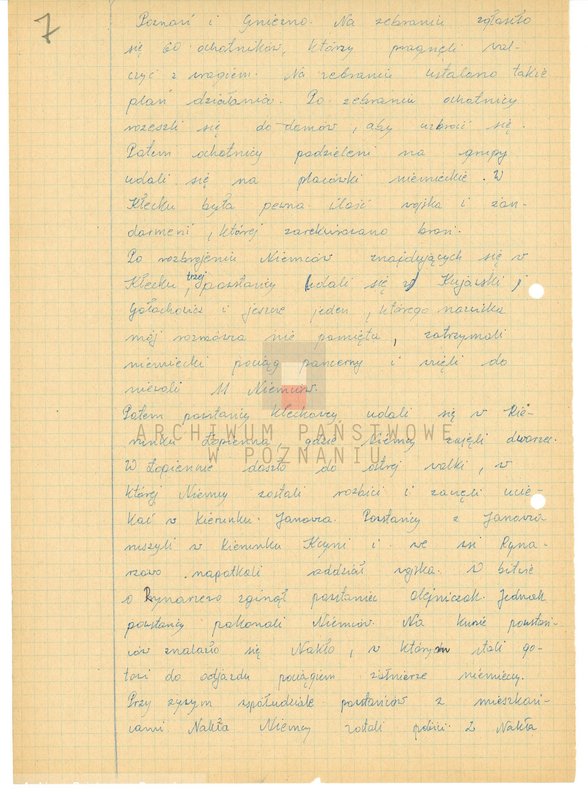 7
Poznań i Gniezno. Na zebraniu zgłosiło
się 60 ochotników, którzy pragnęli wal-
czyć z wrogiem. Na zebraniu ustalono także
plan działania. Po zebraniu ochotnicy
rozeszli się do domów, aby uzbroić się.
Potem ochotnicy podzieleni na grupy
udali się na placówki niemieckie. W
Kłecku była pewna ilość wojska i żan-
darmerii, której zarekwirowano broń.
Po rozbrojeniu Niemców znajdujących się w
Kłecku, trzej powstańcy udali się Kujawski,
Gołachowicz i jeszcze jeden, którego nazwiska
mój rozmówca nie pamięta, zatrzymali
niemiecki pociąg pancerny i wzięli do
niewoli 11 Niemców.
Potem powstańcy kłeckowscy udali się w kie-
runku Łopienna, gdzie Niemcy zajęli dworzec.
W Łopiennie doszło do ostrej walki, w
której Niemcy zostali rozbici i zaczęli ucie-
kać w kierunku Janowca. Powstańcy z Janowca
ruszyli w kierunku Kcyni i we wsi Ryna-
rzewo napotkali oddział wojska. W bitwie
o Rynarzewo zginął powstaniec Olejniczak. Jednak
powstańcy pokonali Niemców. Na kursie powstań-
ców znalazło się Nakło, w którym stali go-
towi do odjazdu pociągiem żołnierze niemieccy.
Przy czynnym współudziale powstańców z mieszkań-
cami Nakła Niemcy zostali pobici. Z Nakła
ARCHIWUM PAŃSTWOWE
W POZNANIU